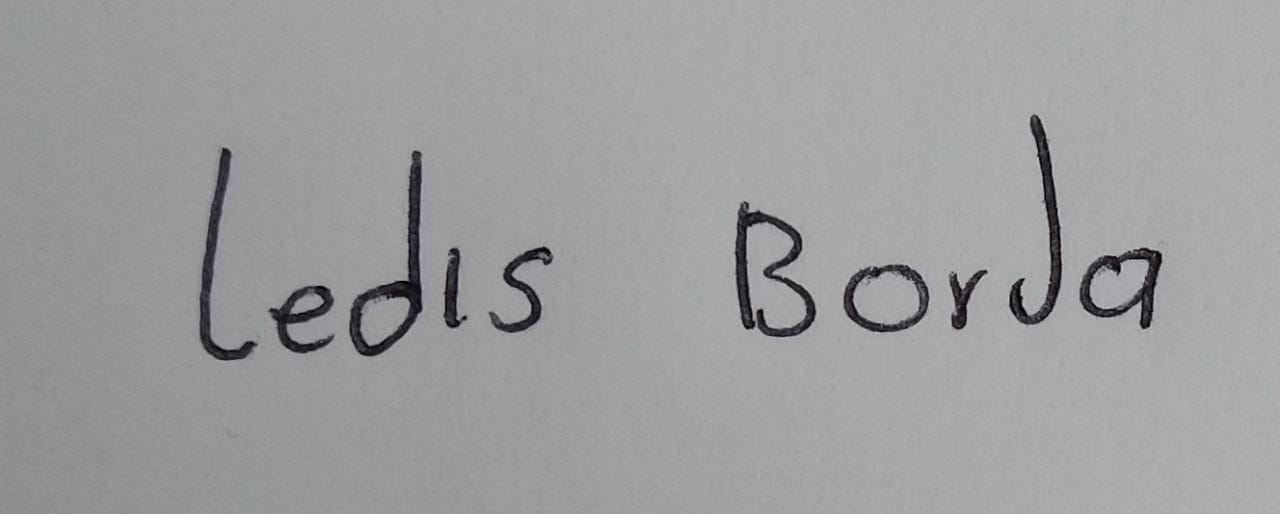 Ledis Borja